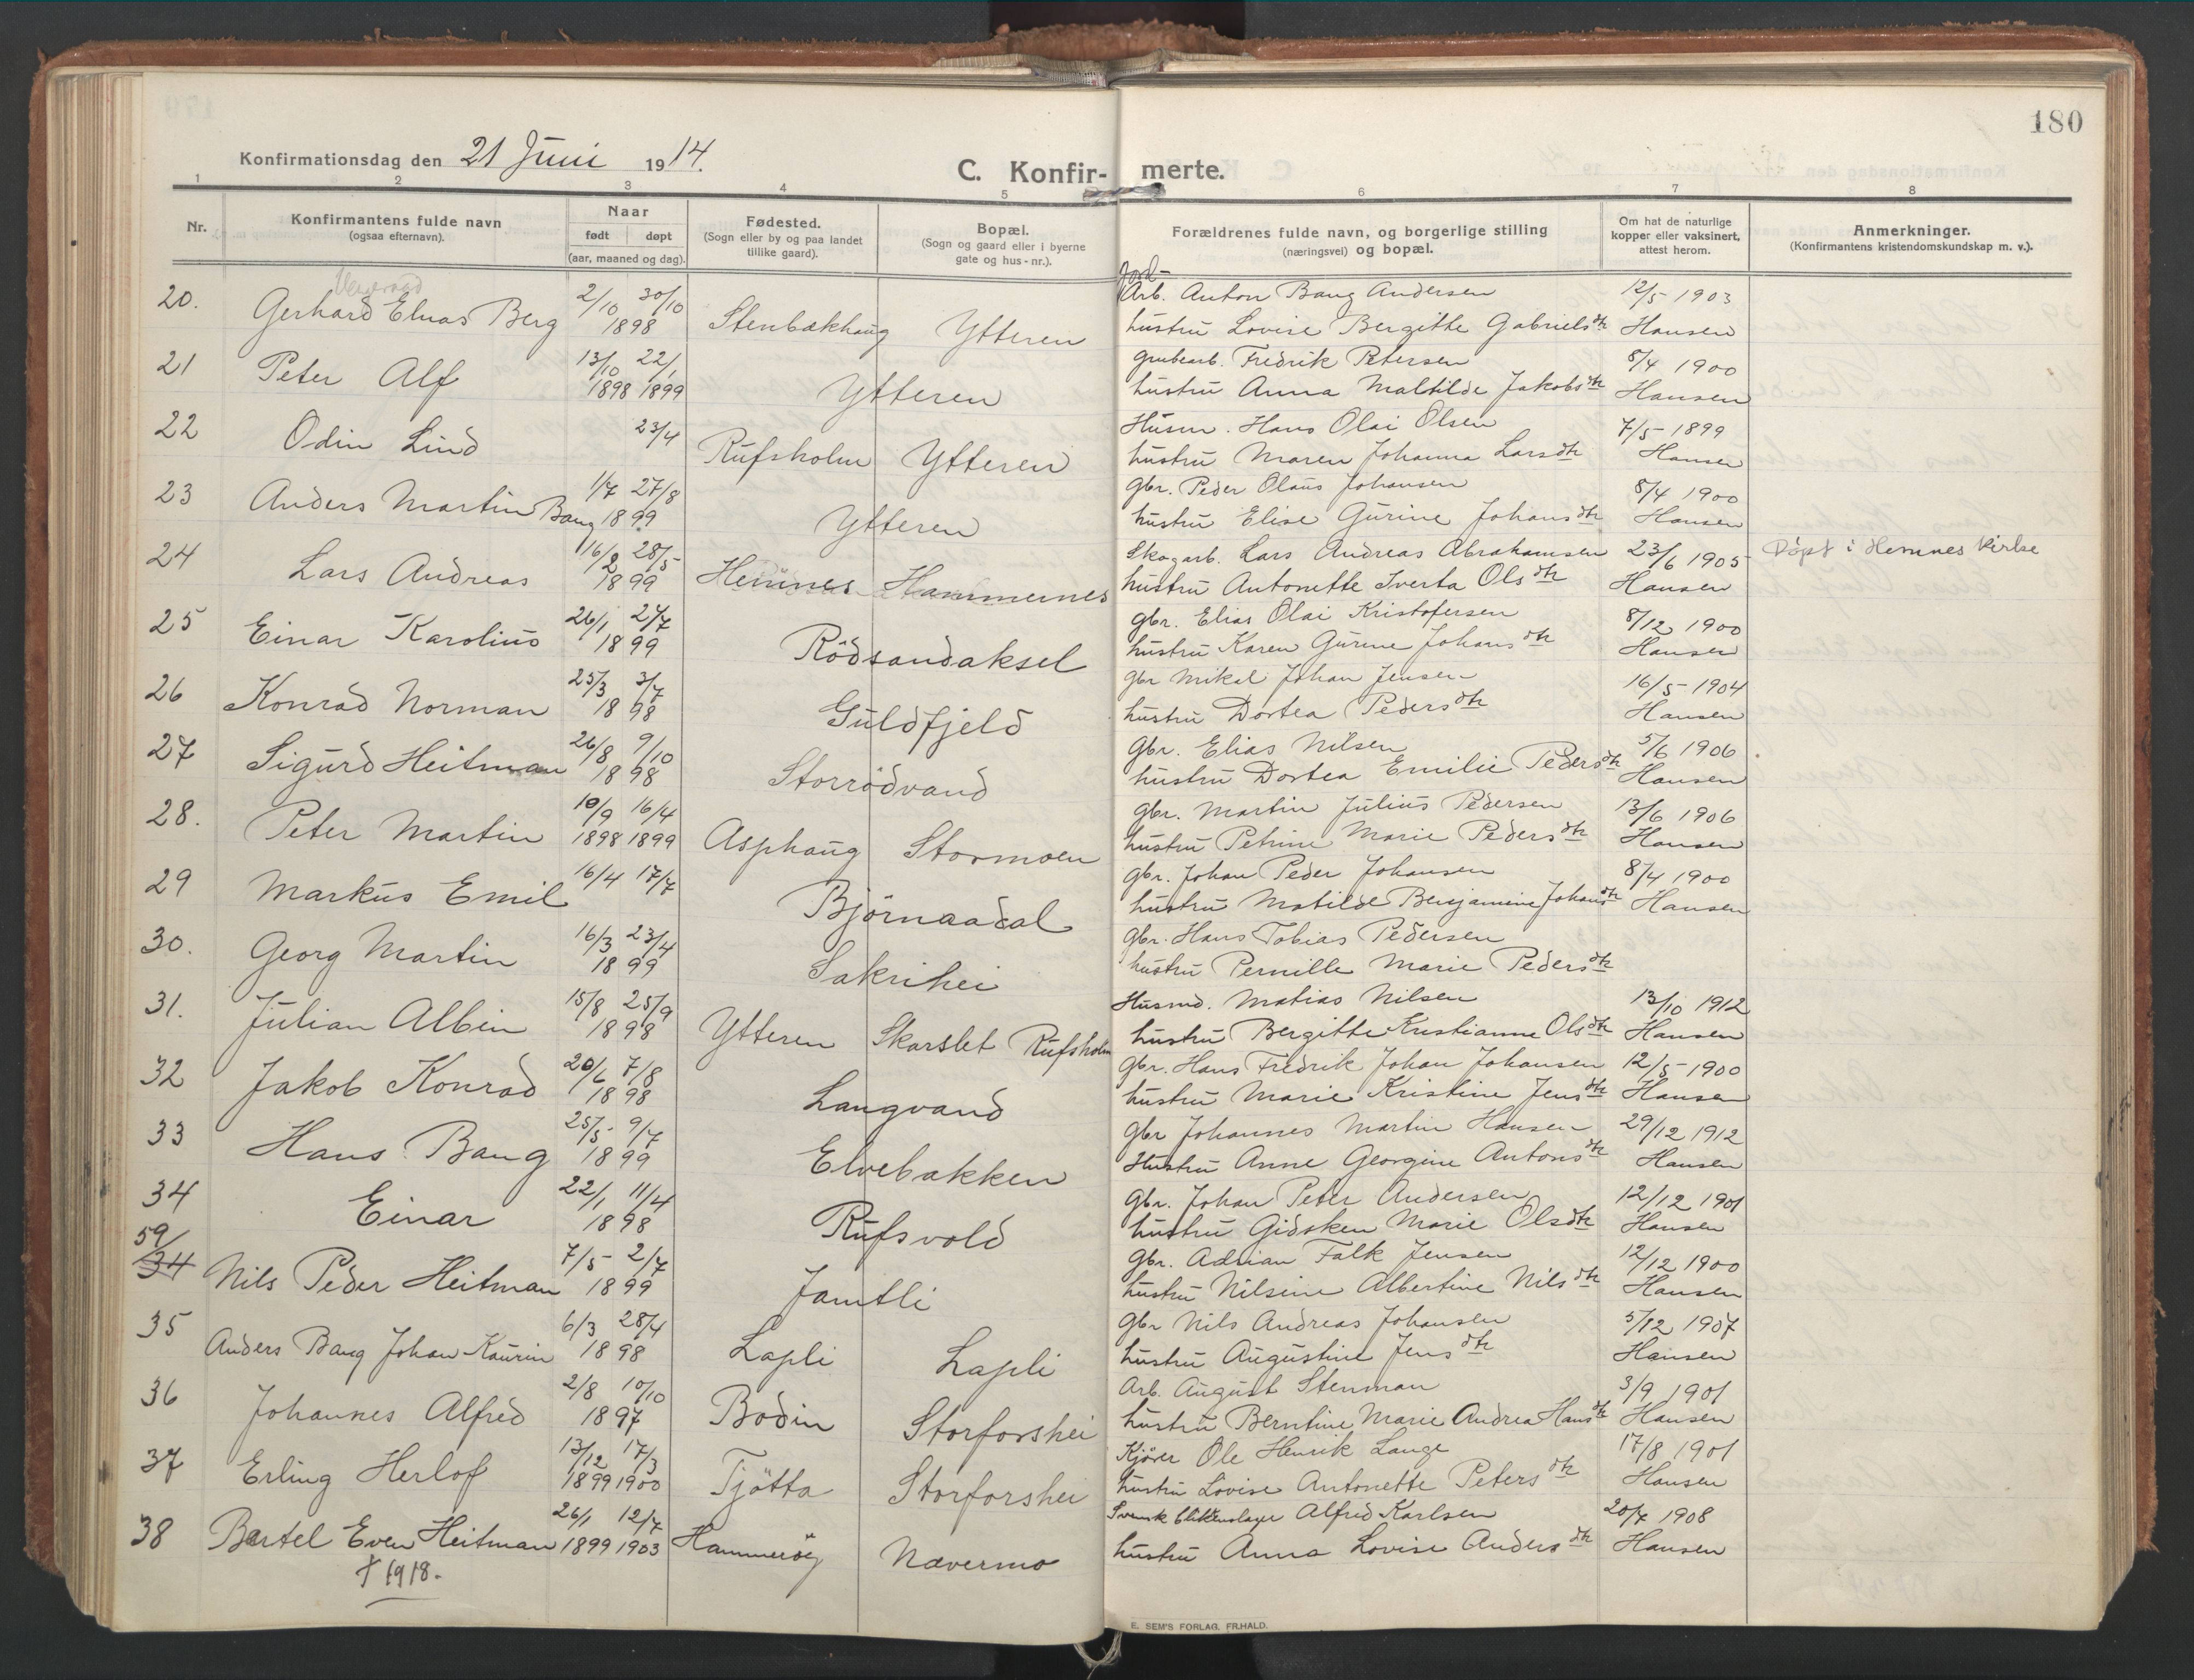 180
Konfirmationsdag den 21 Juni 1914.
C. Konfir- merte.
1 2 3 4 5 6 7 8
Nr.
Konfirmantens fulde navn
(ogsaa efternavn).
Naar
født døpt
(aar, maaned og dag).
Fødested.
(Sogn eller by og paa landet
tillike gaard).
Bopæl.
(Sogn og gaard eller i byerne
gate og hus-nr.).
Forældrenes fulde navn, og borgerlige stilling
(næringsvei) og bopæl.
Om hat de naturlige
kopper eller vaksinert,
attest herom.
Anmerkninger.
(Konfirmantens kristendomskundskap m. v.).
Jord-
20. Gerhard Elnas Berg 2/10 30/10 1898 Stenbækhaug Ytteren Arb. Anton Bang Andersen 12/5 1903
hustru Lovise Bergitte Gabrielsdtr Hansen
21 Peter Alf 13/10 22/1 1898 1899 Ytteren Grubearb. Fredrik Petersen 8/4 1900
hustru Anna Maltilde Jakobsdtr Hansen
22 Odin Lind 23/4 Rufsholm Ytteren Husm. Hans Olai Olsen 7/5 1899
hustru Maren Johanna Larsdtr Hansen
23 Anders Martin Bang 1/7 27/8 1899 Ytteren gbr. Peder Olaus Johansen 8/4 1900
hustru Elise Gurine Johansdtr Hansen
24 Lars Andreas 16/2 28/5 1899 Hemnes Hammernes Skogarb. Lars Andreas Abrahamsen 23/6 1905 Døpt i Hemnes kirke
hustru Antonette Iverta Olsdtr Hansen
25 Einar Karolius 26/1 2/7 1899 Rödsandaksel gbr. Elias Olai Kristofersen 8/12 1900
hustru Karen Gurine Johansdtr Hansen
26 Konrad Norman 25/3 3/7 1898 Guldfjeld gbr Mikal Johan Jensen 16/5 1904
hustru Dortea Pedersdtr Hansen
27 Sigurd Heitman 26/8 9/10 1898 Storrödvand gbr. Elias Nilsen 5/6 1906
hustru Dortea Emilie Pedersdtr Hansen
28. Peter Martin 10/9 16/4 1898 1899 Asphaug Stormoen gbr. Martin Julius Pedersen 13/6 1906
hustru Petrine Marie Pedersdtr Hansen
29 Markus Emil 16/4 17/7 Björnaadal gbr. Johan Peder Johansen 8/4 1900
hustru Matilde Benjamine Johansdtr Hansen
30. Georg Martin 16/3 23/4 1899 Sakrihei gbr. Hans Tobias Pedersen
hustru Pernille Marie Pedersdtr
31. Julian Albin 15/8 25/9 1898 Ytteren Skarslet Rufsholm Husmd. Matias Nilsen 13/10 1912
hustru Bergitte Kristianne Olsdtr Hansen
32 Jakob Konrad 20/6 7/8 1898 Langvand gbr. Hans Fredrik Johan Johansen 12/5 1900
hustru Marie Kristine Jensdtr Hansen
33 Hans Bang 25/5 9/7 1899 Elvebakken gbr Johannes Martin Hansen 29/12 1912
Hustru Anne Georgine Antonsdtr Hansen
34 Einar 22/1 11/4 1898 Rufsvold gbr. Johan Peter Andersen 12/12 1901
hustru Gidsken Marie Olsdtr Hansen
59/
34 Nils Peder Heitman 7/5 2/7 1899 Jamtli gbr. Adrian Falk Jensen 12/12 1900
hustru Nilsine Albertine Nilsdtr Hansen
35 Anders Bang Johan Kaurin 6/3 28/4 1898 Lapli Lapli gbr Nils Andreas Johansen 5/12 1907
hustru Augustine Jensdtr Hansen
36 Johannes Alfred 2/8 10/10 1897 Bodin Storforshei Arb. August Stenman 3/9 1901
hustru Berntine Marie Andrea Hansdtr Hansen
37 Erling Herlof 13/12 17/3 1899 1900 Tjötta Storforshei Kjörer Ole Henrik Lange 17/8 1901
hustru Lovise Antonette Petersdtr Hansen
38 Bertel Even Heitman 26/1 12/7 1899 1903 Hammeröy Nævermo Svensk blikkenslager Alfred Karlsen 20/7 1908
hustru Anna Lovise Andersdtr Hansen
† 1918.
E. SEM'S FORLAG, FR.HALD.